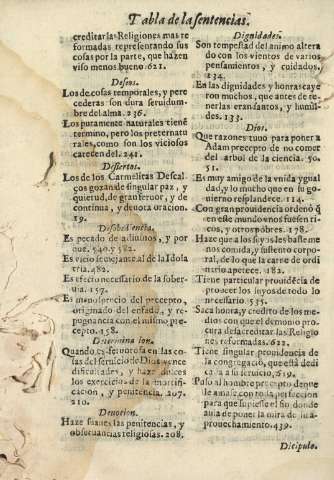 Tabla de la sentencias.
creditar las Religiones mas re
formadas representando sus
cosas por la parte, que hazen
viso menos bueno. 621.
Deseos.
Los de cosas temporales, y pere
cederas son dura seruidum-
bre del alma. 236.
Los puramente naturales tiené
termino, pero los preternatu
rales, como son los viciosos
carecen del. 241.
Disiertos.
Los de los Carmelitas Descal-
ços gozan de singular paz, y
quietud, de gran feruor, y de
continua, y deuota oracion.
19.
Desobediencia.
Es pecado de adiuinos, y por
que. 540. y 582.
Es vicio semejante al de la Idola
tria. 482.
Es efecto necesario de la sober-
uia. 157.
Es menosprecio del precepto,
originado del enfado, y re-
pugnancia con el mismo pre-
cepto. 158.
Determinacion.
Quando es feruorosa en las co-
sas del seruicio de Dios, vence
dificultades, y haze dulces
los exercicios de la mortifi-
cacion, y penitencia. 207.
210.
Deuocion.
Haze suaues las penitencias, y
obseruancias religiosas. 208.
Dignidades.
Son tempestad del animo altera
do con los vientos de varios
pensamientos, y cuidados,
134.
En las dignidades y honras caye
ron muchos, que antes de te-
nerlas eran santos, y humil-
des. 133.
Dios.
Que razones tuuo para poner a
Adam precepto de no comer
del arbol de la ciencia. 50.
51.
Es muy amigo de la vnida ygual
dad, y lo mucho que en su go-
uierno resplandece. 114.
Con gran prouidencia ordenó q̃
en este mundo vnos fuesen ri-
cos, y otros pobres. 178.
Haze que a los suyos les baste me
nos comida, y sustento corpo-
ral, de lo que la carne de ordi
nario apetece. 182.
Tiene particular prouidécia de
proueer los suyos de todo lo
necesario. 535.
Saca honra, y credito de los me-
dios con que el demonio pro-
cura desacreditar las Religio
nes reformadas. 622.
Tiene singular prouidencia de
la congregacion, que está dedi
cada a su seruicio, 639.
Puso al hombre precepto de que
le amase con toda perfeccion
para que supiese el fin donde
auia de poner la mira de su a-
prouechamiento. 439.
Dicipulo.